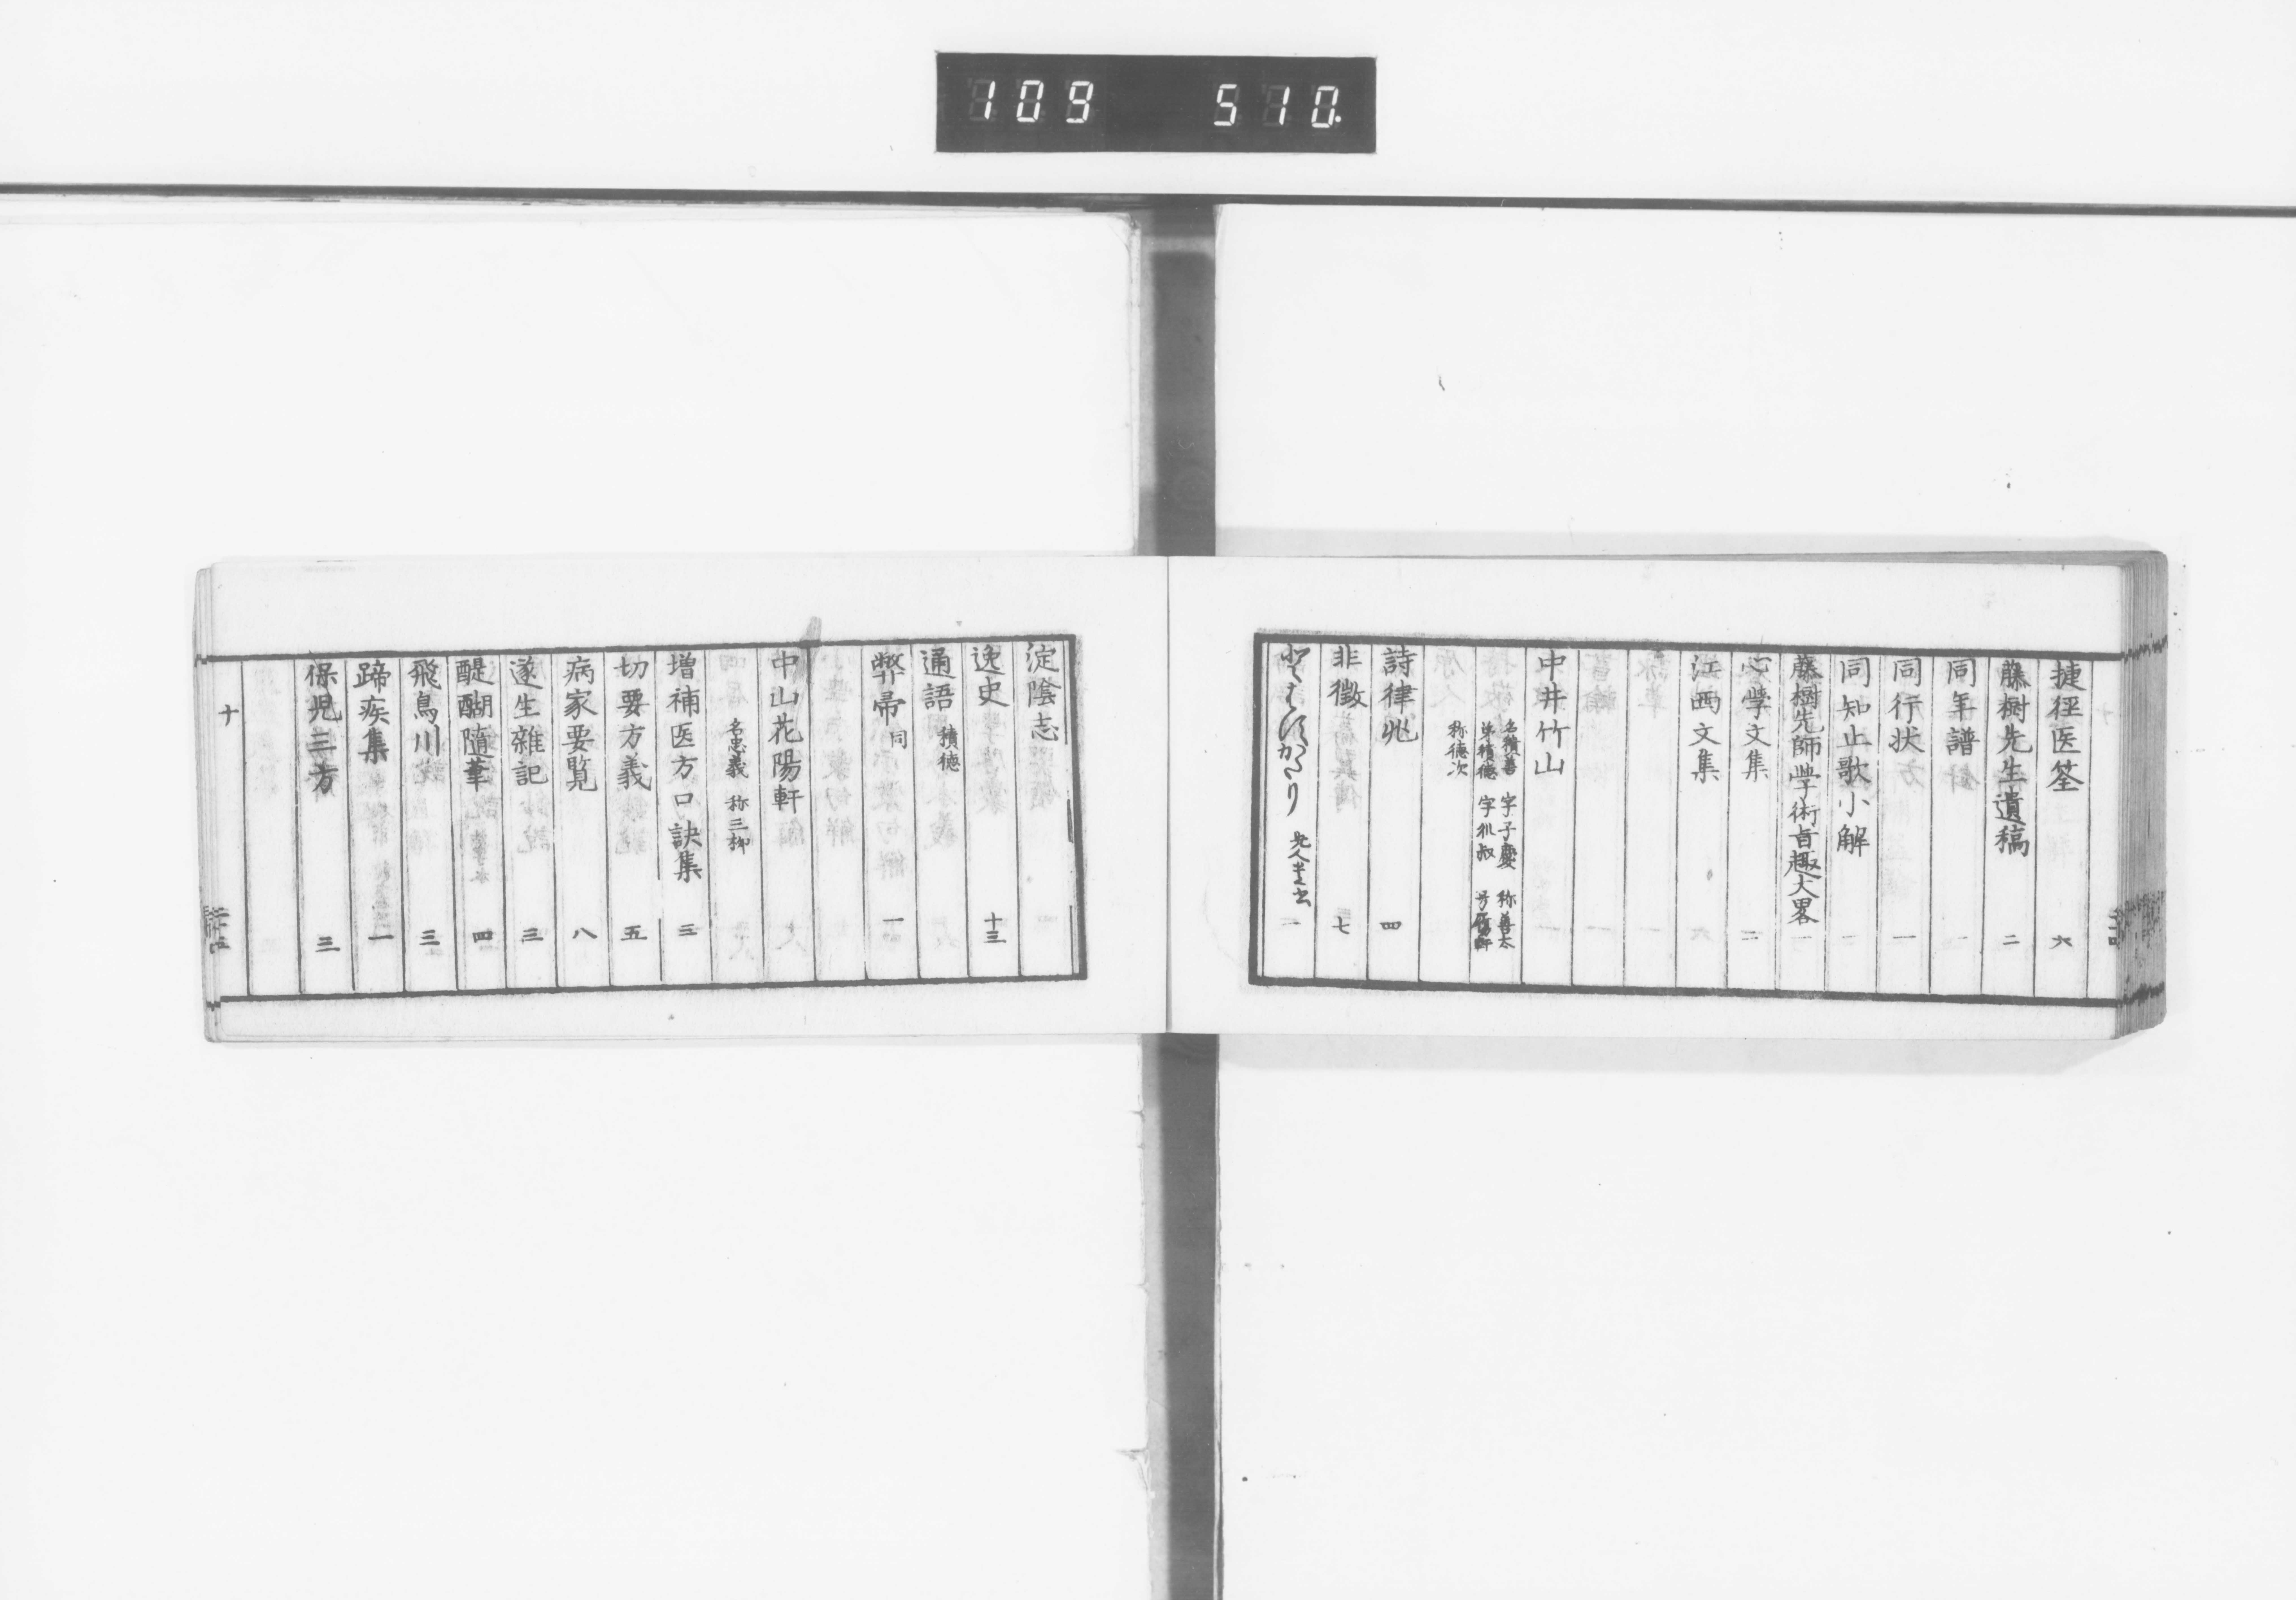 109 510.
捷徑医筌 六
藤樹先生遺稿 二
同年譜 一
同行状 一
同知止歌小解 一
藤樹先師学術旨趣大畧 一
心学文集 二
江西文集
中井竹山
名積善 字子慶 称善太
弟積徳 字叔
称徳次
詩律兆 四
非徴 七
かたり 一
淀陰志
逸史 十三
通語 積徳
弊帚 同 一
中山花陽軒
名忠義 称三柳
増補医方口訣集 三
切要方義 五
病家要覧 八
遂生雑記 三
醍醐随筆 四
飛鳥川 三
蹄疾集 一
保児三方 三
十